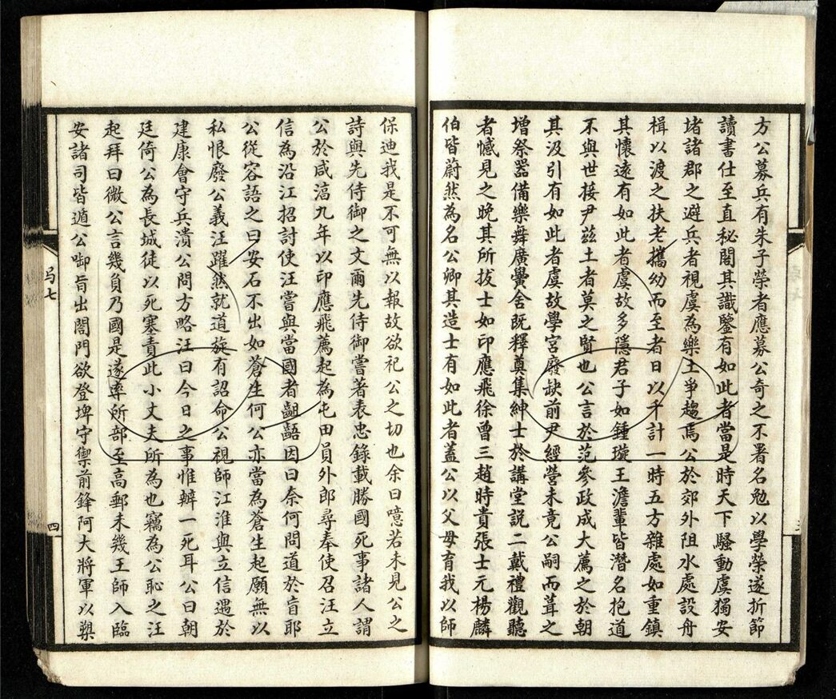 方公募兵有朱子榮者應募公奇之不署名勉以學榮遂折節
讀書仕至直秘閣其識鑒有如此者當是時天下騷動虞獨安
堵諸郡之避兵者視虞為樂土爭趨焉公於郊外阻水處設舟
楫以渡之扶老攜幼而至者日以千計一時五方雜處如重鎮
其懷遠有如此者虞故多隱君子如鍾璇王澹輩皆潛名抱道
不與世接尹茲土者莫之賢也公言於范參政成大薦之於朝
其汲引有如此者虞故學宮廢缺前尹經營未竟公嗣而葺之
增祭器備樂舞廣黌舍既釋奠集紳士於講堂説二戴禮觀聽
者憾見之晚其所拔士如印應飛徐曾三趙時貴張士元楊麟
伯皆蔚然為名公卿其造士有如此者蓋公以父母育我以師
保迪我是不可無以報故欲祀公之切也余曰噫若未見公之
詩與先侍御之文爾先侍御嘗著表忠錄載勝國死事諸人謂
公於咸淳九年以印應飛薦起為屯田員外郎尋奉使召汪立
信為沿江招討使汪嘗與當國者齟齬因曰奈何問道於盲耶
公從容語之曰安石不出如蒼生何公亦當為蒼生起願無以
私恨廢公義汪躍然就道旋有詔命公視師江淮與立信遇於
建康會守兵潰公問方略汪曰今日之事惟辦一死耳公曰朝
廷倚公為長城徒以死塞責此小丈夫所為也竊為公恥之汪
起拜曰微公言幾負乃國是遂專所部至高郵未幾王師入臨
安諸司皆遁公啣旨出閤門欲登埤守禦前鋒阿大將軍以槊
局七
四
三